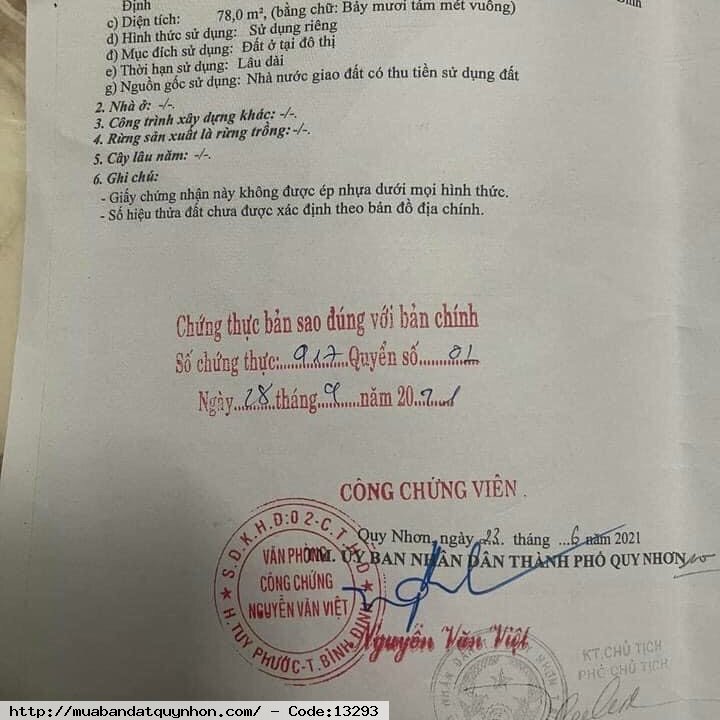 Định
c) Diện tích: 78,0 m², (bằng chữ: Bảy mươi tám mét vuông)
d) Hình thức sử dụng: Sử dụng riêng
đ) Mục đích sử dụng: Đất ở tại đô thị
e) Thời hạn sử dụng: Lâu dài
g) Nguồn gốc sử dụng: Nhà nước giao đất có thu tiền sử dụng đất
2. Nhà ở: -/-.
3. Công trình xây dựng khác: -/-.
4. Rừng sản xuất là rừng trồng: -/-.
5. Cây lâu năm: -/-.
6. Ghi chú:
- Giấy chứng nhận này không được ép nhựa dưới mọi hình thức.
- Số hiệu thửa đất chưa được xác định theo bản đồ địa chính.
Chứng thực bản sao đúng với bản chính
Số chứng thực: 917 Quyển số 01
Ngày 28 tháng 9 năm 2021
CÔNG CHỨNG VIÊN
Quy Nhơn, ngày 23 tháng 6 năm 2021
TM. ỦY BAN NHÂN DÂN THÀNH PHỐ QUY NHƠN
S.Đ.K.H.Đ:02-C.T.H.D
VĂN PHÒNG
CÔNG CHỨNG
NGUYỄN VĂN VIỆT
H.TUY PHƯỚC-T.BÌNH ĐỊNH
Nguyễn Văn Việt
KT.CHỦ TỊCH
PHÓ CHỦ TỊCH
http://muabandatquynhon.com/ - Code:13293